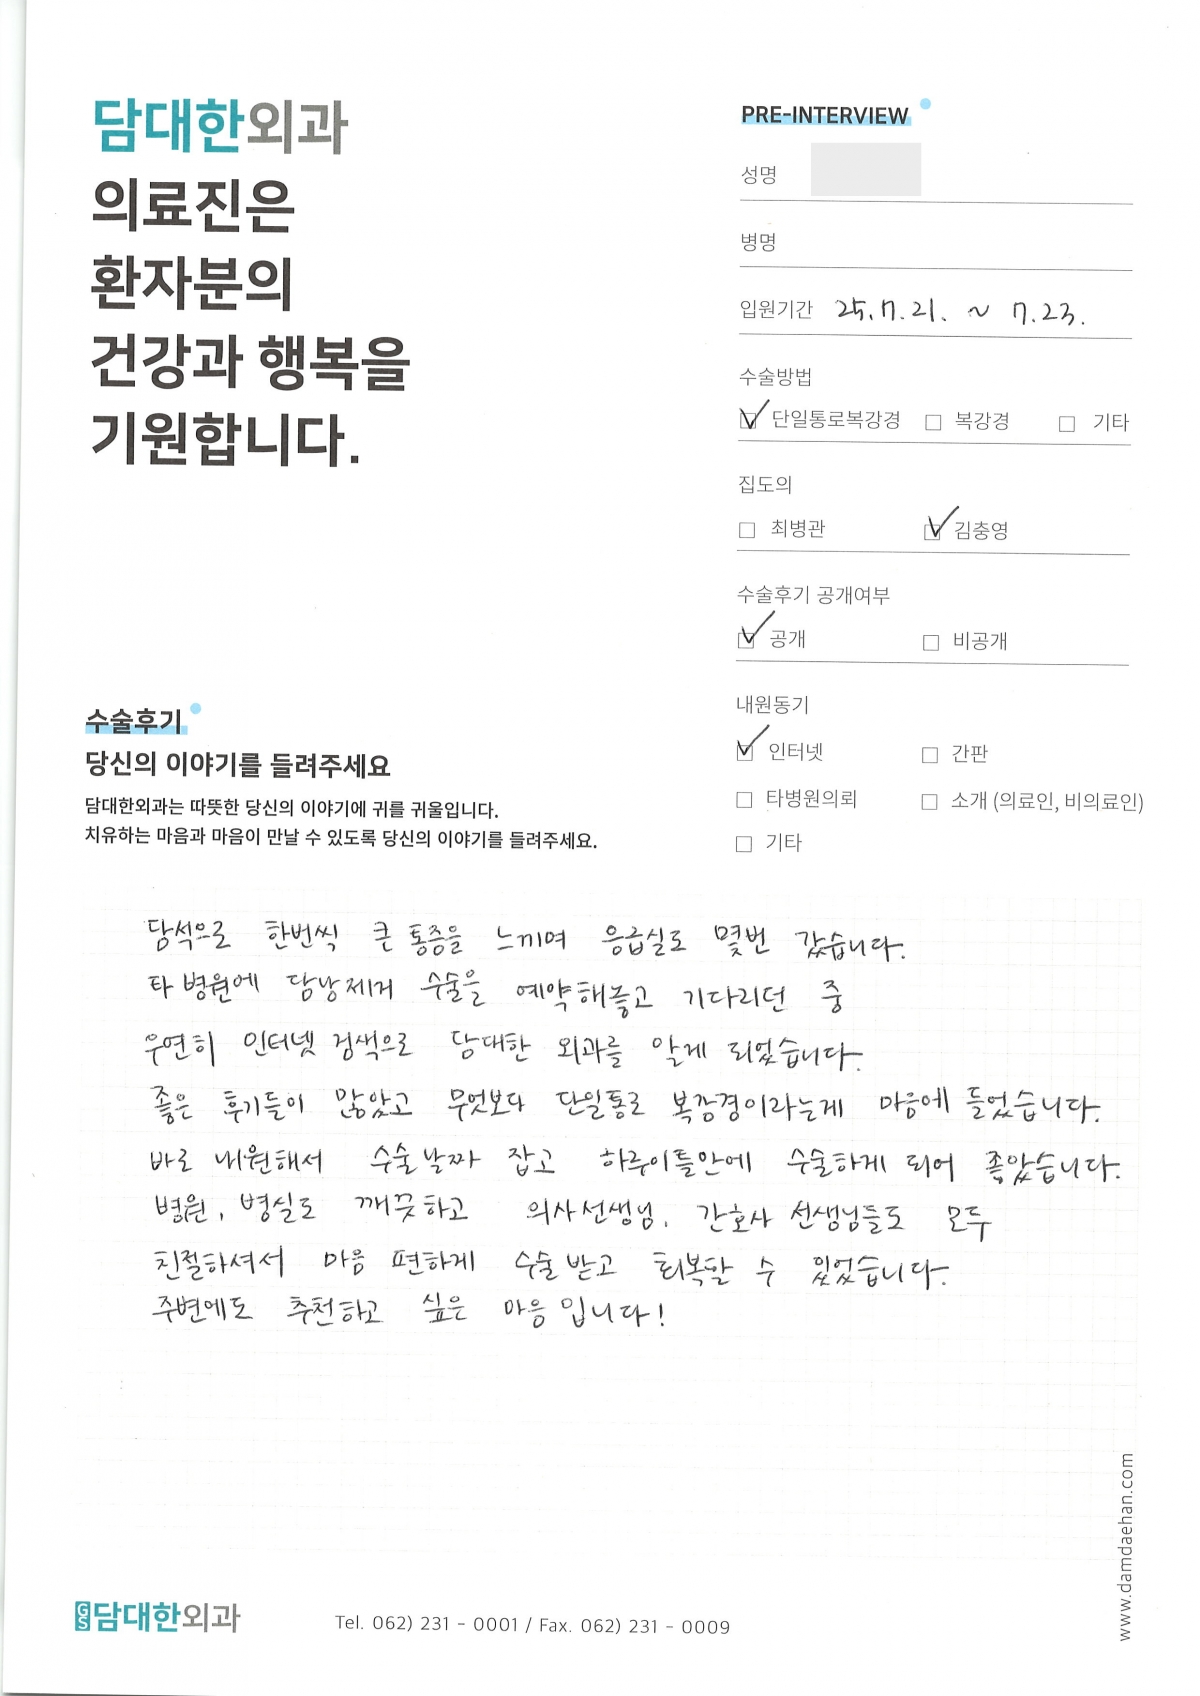 담대한외과
의료진은
환자분의
건강과 행복을
기원합니다.
PRE-INTERVIEW
성명
병명
입원기간 25.7.21. ~ 7.23.
수술방법
단일통로복강경 복강경 기타
집도의
최병관 김충영
수술후기 공개여부
공개 비공개
내원동기
인터넷 간판
타병원의뢰 소개 (의료인, 비의료인)
기타
수술후기
당신의 이야기를 들려주세요
담대한외과는 따뜻한 당신의 이야기에 귀를 귀울입니다.
치유하는 마음과 마음이 만날 수 있도록 당신의 이야기를 들려주세요.
담석으로 한번씩 큰 통증을 느끼며 응급실도 몇번 갔습니다.
타 병원에 담낭제거 수술을 예약해놓고 기다리던 중
우연히 인터넷 검색으로 담대한 외과를 알게 되었습니다.
좋은 후기들이 많았고 무엇보다 단일통로 복강경이라는게 마음에 들었습니다.
바로 내원해서 수술날짜 잡고 하루이틀안에 수술하게 되어 좋았습니다.
병원, 병실도 깨끗하고 의사선생님, 간호사 선생님들도 모두
친절하셔서 마음 편하게 수술 받고 회복할 수 있었습니다.
주변에도 추천하고 싶은 마음입니다!
www.damdaehan.com
GS 담대한외과
Tel. 062) 231 - 0001 / Fax. 062) 231 - 0009